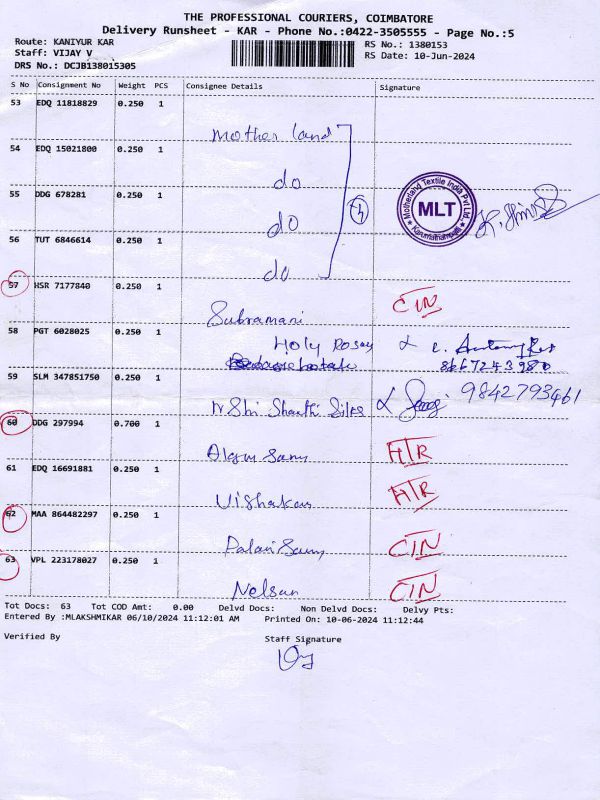 THE PROFESSIONAL COURIERS, COIMBATORE
Delivery Runsheet - KAR - Phone No.:0422-3505555 - Page No.:5
Route: KANIYUR KAR
Staff: VIJAY V
DRS No.: DCJB138015305
RS No.: 1380153
RS Date: 10-Jun-2024
S No Consignment No Weight PCS Consignee Details Signature
53 EDQ 11818829 0.250 1
Mother land
54 EDQ 15021800 0.250 1
do
55 DDG 678281 0.250 1
do
4
Motherland Textile India Pvt Ltd
MLT
Karumathampatti
56 TUT 6846614 0.250 1
do
57 HSR 7177840 0.250 1
Subramani
CIN
58 PGT 6028025 0.250 1
Holy Rosay
8667243980
59 SLM 347851750 0.250 1
Shri Shanthi Silks
9842793461
60 DDG 297994 0.700 1
HTR
61 EDQ 16691881 0.250 1
Vishakan
HTR
62 MAA 864482297 0.250 1
Palani Samy
CIN
63 VPL 223178027 0.250 1
Nelsan
CIN
Tot Docs: 63 Tot COD Amt: 0.00 Delvd Docs: Non Delvd Docs: Delvy Pts:
Entered By :MLAKSHMIKAR 06/10/2024 11:12:01 AM Printed On: 10-06-2024 11:12:44
Verified By
Staff Signature